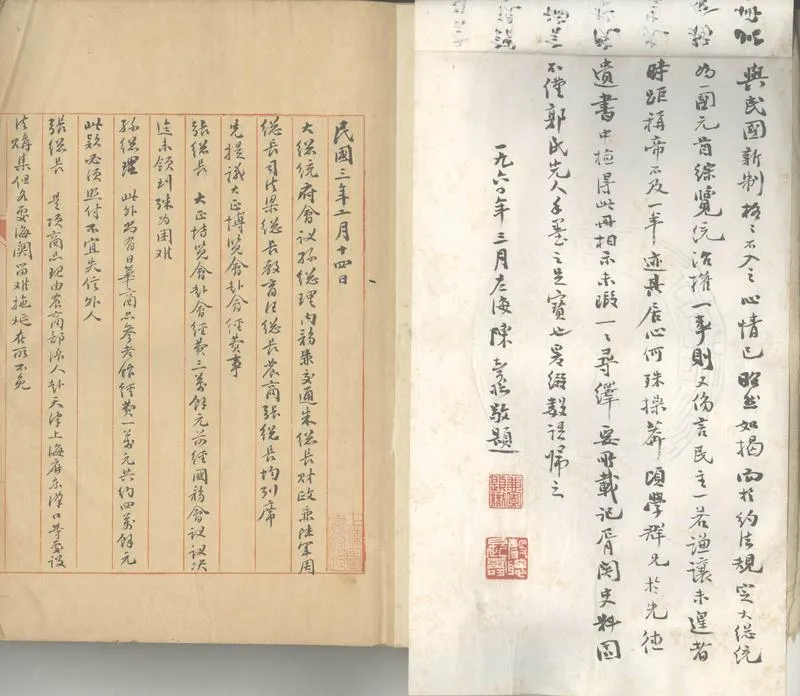 與民國新制格〻不入之心情已昭然如揭而於約法規定大總統
為一國元首綜覽統治權一事則又偽言民主一若謙讓未遑者
時距稱帝不及一年迹其居心何殊操莽頃學群兄於先德
遺書中檢得此冊相示未暇一〻尋繹要所載記屑関史料固
不僅郭氏先人手墨之足寶也爰綴數語歸之
一九六〇年三月左海陳敬題
民國三年二月十四日
大總統府會議孫總理内務朱交通朱總長財政兼陸軍周
總長司法梁總長教育汪總長農商張總長均列席
先提議大正博覽會赴會經費事
張總長 大正博覽會赴會經費三萬餘元前經國務會議議決
迄未領到殊为困難
孫總理 此外尚有日華商品參考館經費一萬元共約四萬餘元
此款必須照付不宜失信外人
張總長 是項商品現由農商部派人赴天津上海廣東漢口等處設
法購集但各處海關留難拖延在所不免